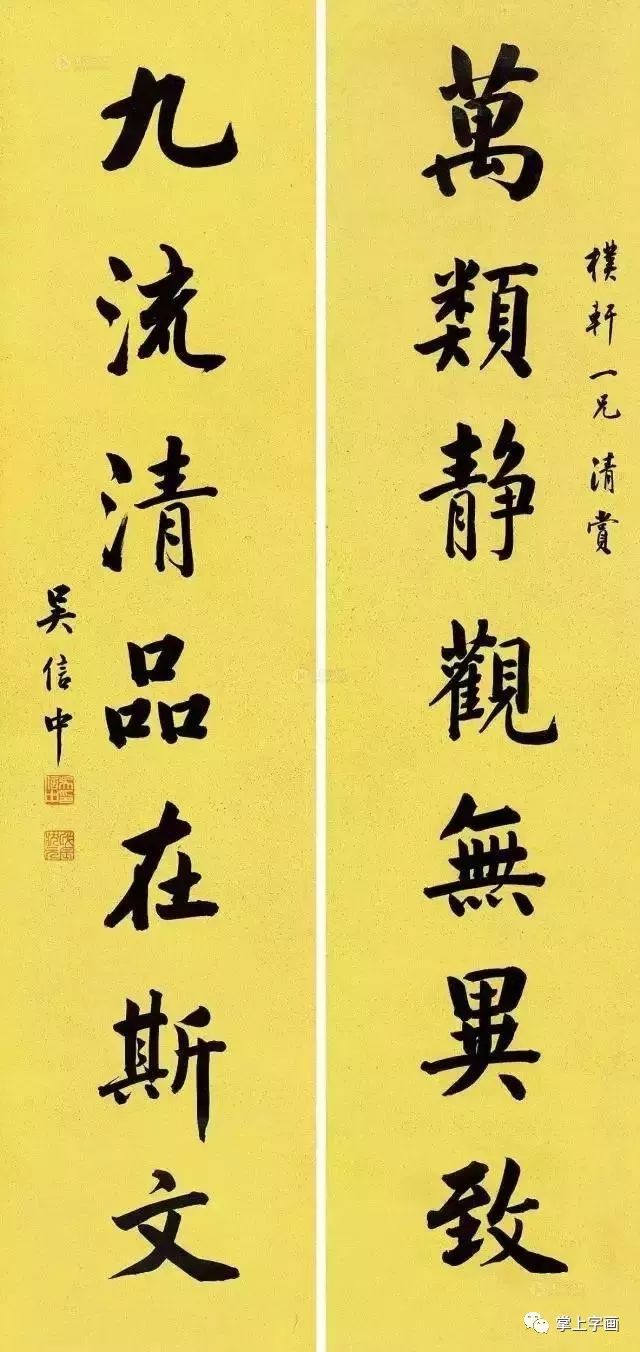 萬類静觀無異致
樸軒一兄清賞
九流清品在斯文
吳信中
掌上字画